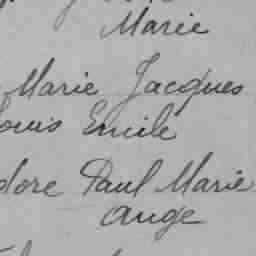 Marie
Marie Jacques
ouis Emile
dore Paul Marie
Ange